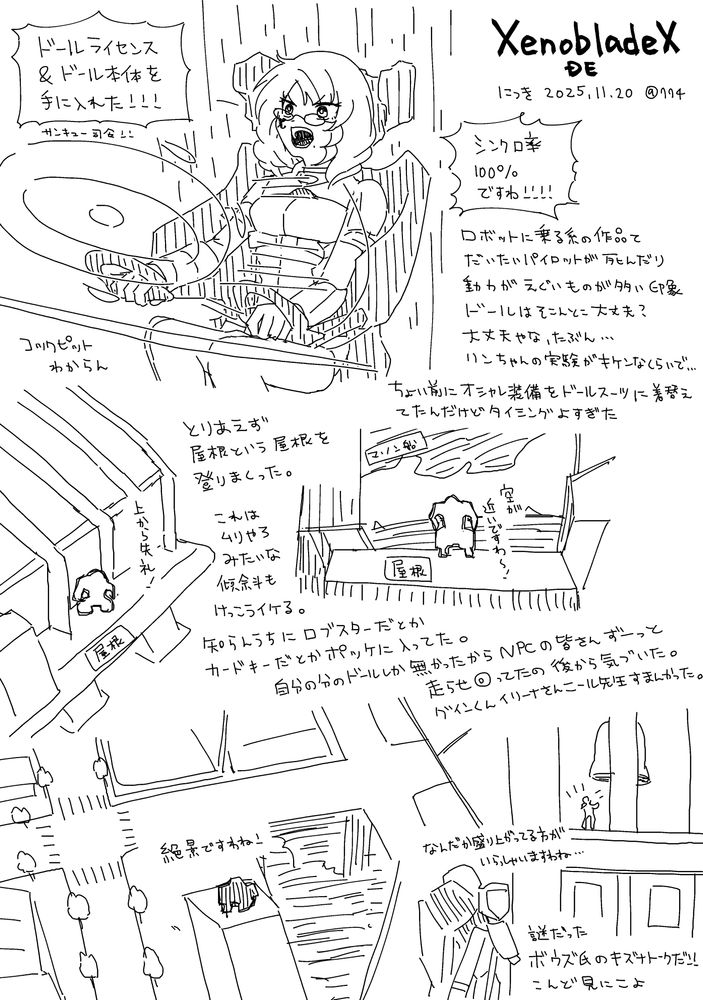 XenobladeX
DE
にっき 2025.11.20 @774
ドールライセンス
&ドール本体を
手に入れた!!!
サンキュー司令!!
シンクロ率
100%
ですわ!!!!
ロボットに乗る系の作品て
だいたいパイロットが死んだり
動力がえぐいものが多い印象
ドールはそこんとこ大丈夫?
大丈夫やな、たぶん…
リンちゃんの実験がキケンなくらいで…
コックピット
わからん
ちょい前にオシャレ装備をドールスーツに着替え
てたんだけどタイミングよすぎた
とりあえず
屋根という屋根を
登りまくった。
これは
ムリやろ
みたいな
傾斜も
けっこうイケる。
上から失礼!
屋根
マ・ノン船
空が
近いですわ〜!
屋根
知らんうちにロブスターだとか
カードキーだとかポッケに入ってた。
自分の分のドールしか無かったからNPCの皆さんずーっと
走らせ回ってたの後から気づいた。
グインくんイリーナさんニール先生すまんかった。
絶景ですわね!
なんだか盛り上がってる方が
いらっしゃいますわね…
謎だった
ボウズ氏のキズナトークだ!!
こんど見にこよ